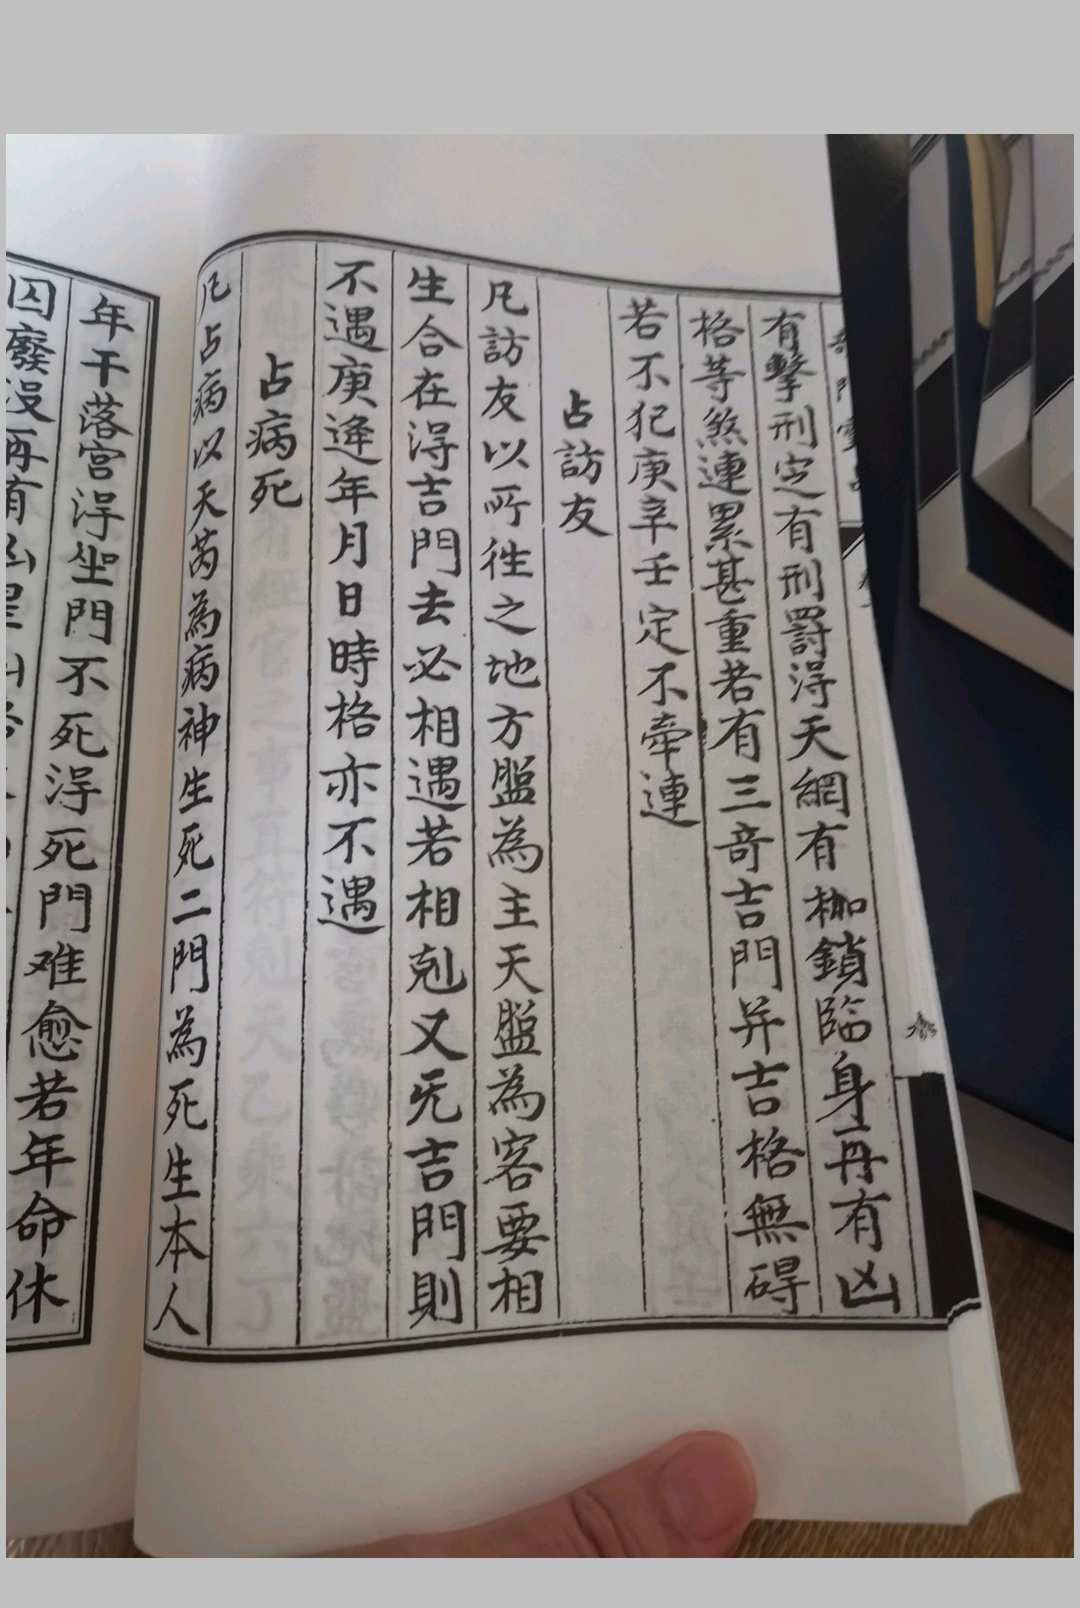 有擊刑定有刑罰淂天網有枷鎖臨身再有凶
格等煞連累甚重若有三奇吉門并吉格無碍
若不犯庚辛壬定不牽連
占訪友
凡訪友以所徃之地方盤為主天盤為客要相
生合在淂吉門去必相遇若相剋又旡吉門則
不遇庚逄年月日時格亦不遇
占病死
凡占病以天芮為病神生死二門為死生本人
年干落宮淂坐門不死淂死門难愈若年命休
囚廢没再有凶星